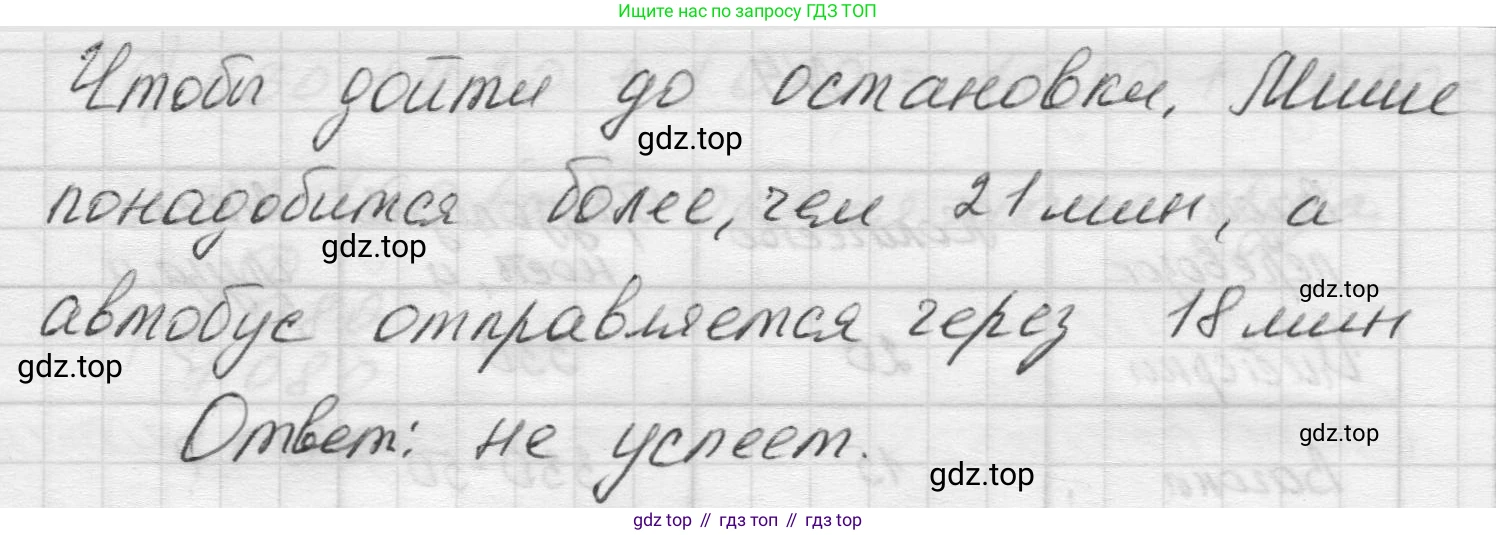 Ищите нас по запросу ГДЗ ТОП
Чтобы дойти до остановки, Мише
gdz.top
понадобится более, чем 21 мин, а
gdz.top
gdz.top
автобус отправляется через 18 мин
gdz.top
Ответ: не успеет.
gdz.top
gdz.top
gdz top // гдз топ // гдз top